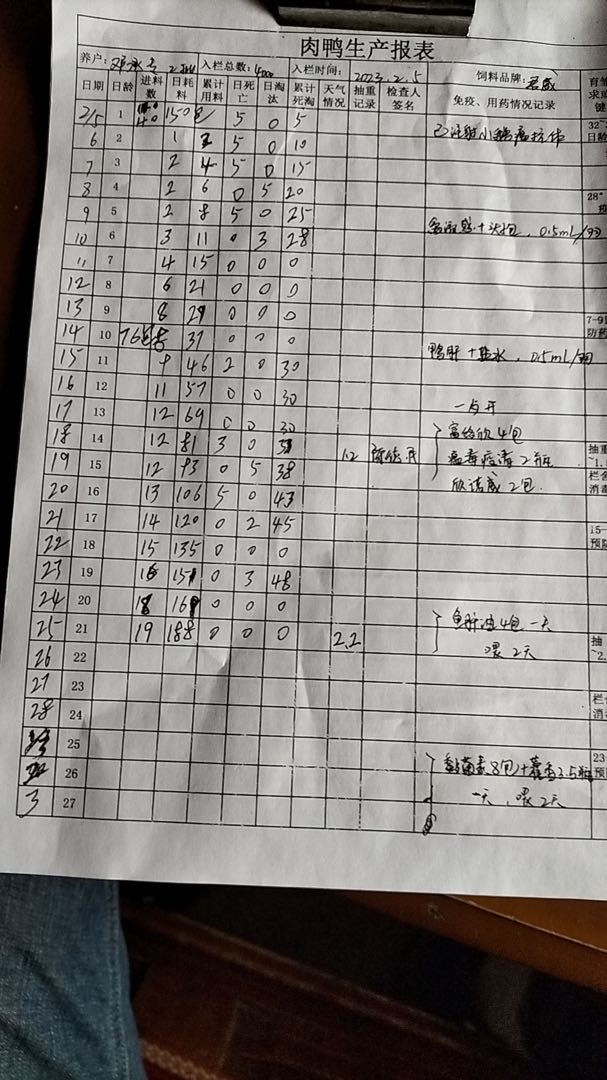 肉鸭生产报表
养户: 入栏总数: 4000 入栏时间: 2023.2.5 饲料品牌:
日期 日龄 进料数 日耗料 累计用料 日死亡 日淘汰 累计死淘 天气情况 抽重记录 检查人签名 免疫、用药情况记录
2/5 1 40 5 0 5 已注射小鹅瘟抗体 32~
6 2 1 2 5 0 10 日龄
7 3 2 4 5 0 15
8 4 2 6 0 5 20 28°
9 5 2 8 5 0 25 0.5mL/羽
10 6 3 11 0 3 28
11 7 4 15 0 0 0
12 8 6 21 0 0 0
13 9 8 29 0 0 0 7-9
14 10 8 37 0 0 0 防药
15 11 9 46 2 0 30 鸭肝+盐水,0.5mL/羽
16 12 11 57 0 0 30
17 13 12 69 0 0 30 一点开
18 14 12 81 3 0 4包 抽重
19 15 12 93 0 5 38 1.2 病毒 2瓶 ~1.
20 16 13 106 5 0 43 2包 消毒
21 17 14 120 0 2 45 15-
22 18 15 135 0 0 0 预防
23 19 16 151 0 3 48
24 20 18 169 0 0 0
25 21 19 188 0 0 0 2.2 鱼肝油4包一天 抽
26 22 喂2天 ~2.
27 23
28 24 消
25 23
26 8包+藿香3.5瓶 预
3 27 一天,喂2天